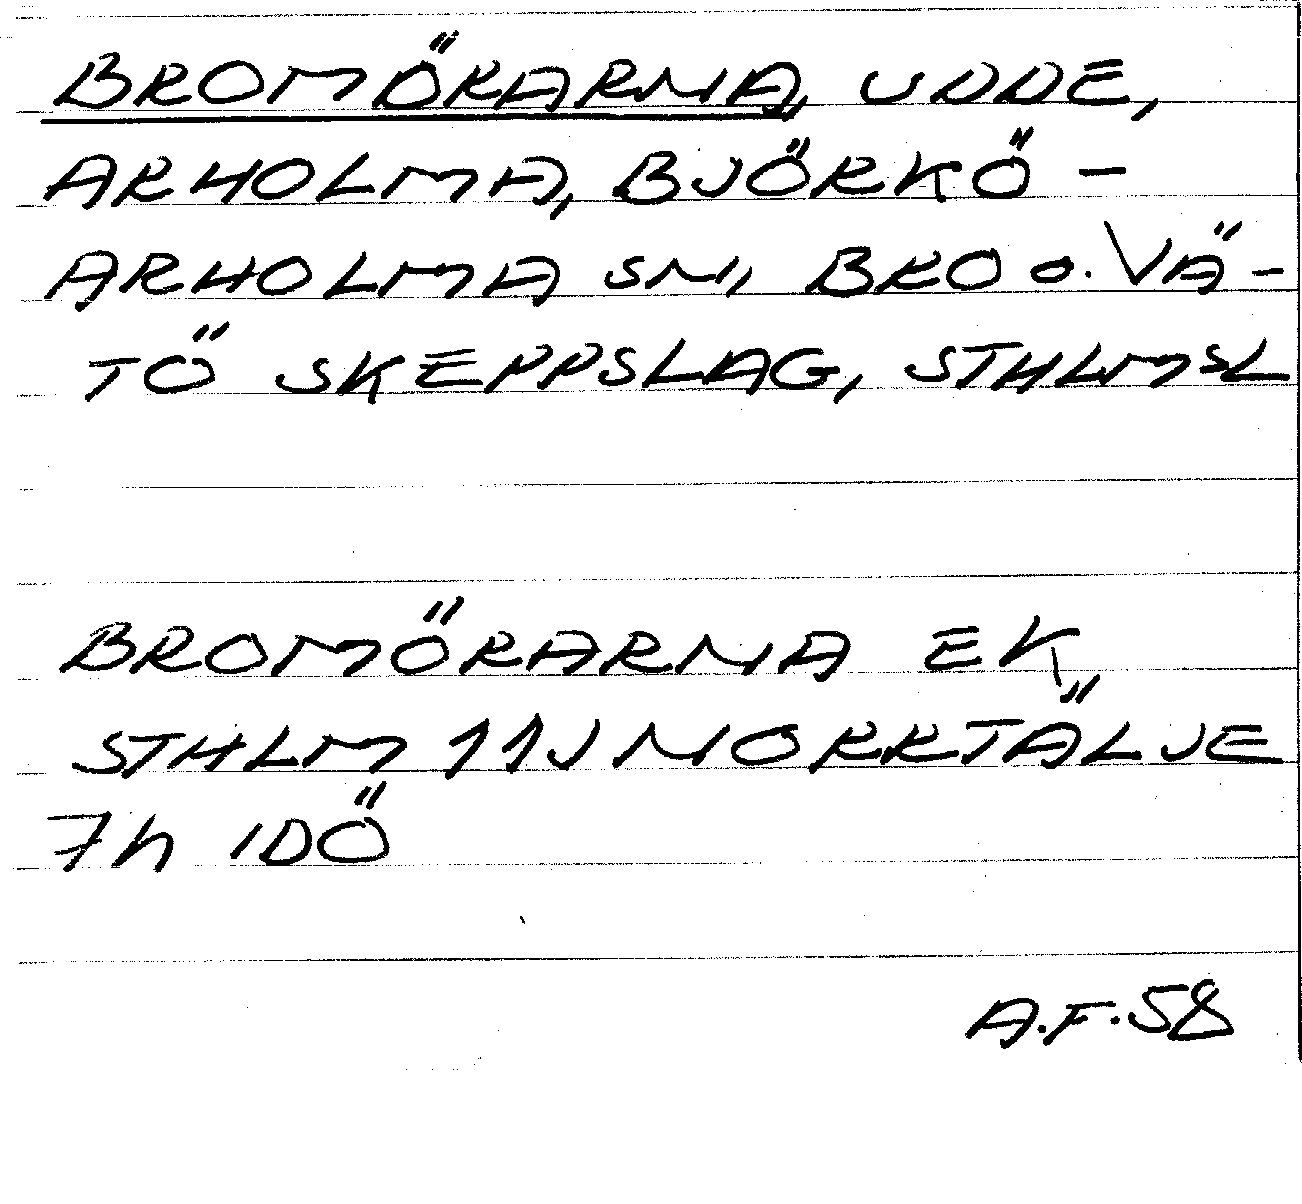 BROMÖRARNA, UDDE,
ARHOLMA, BJÖRKÖ -
ARHOLMA SN, BRO O. VÄ-
TÖ SKEPPSLAG, STHLMSL
BROMÖRARNA EK
STHLM 11J NORRTÄLJE
7h IDÖ
A.F. 58